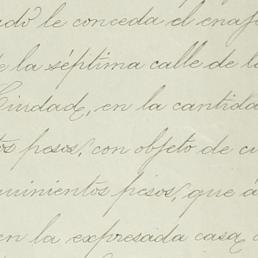 ado le conceda el enaj
e la séptima calle de la
Ciudad, en la cantida
tos pesos, con objeto de cu
quinientos pesos, que a
en la expresada casa